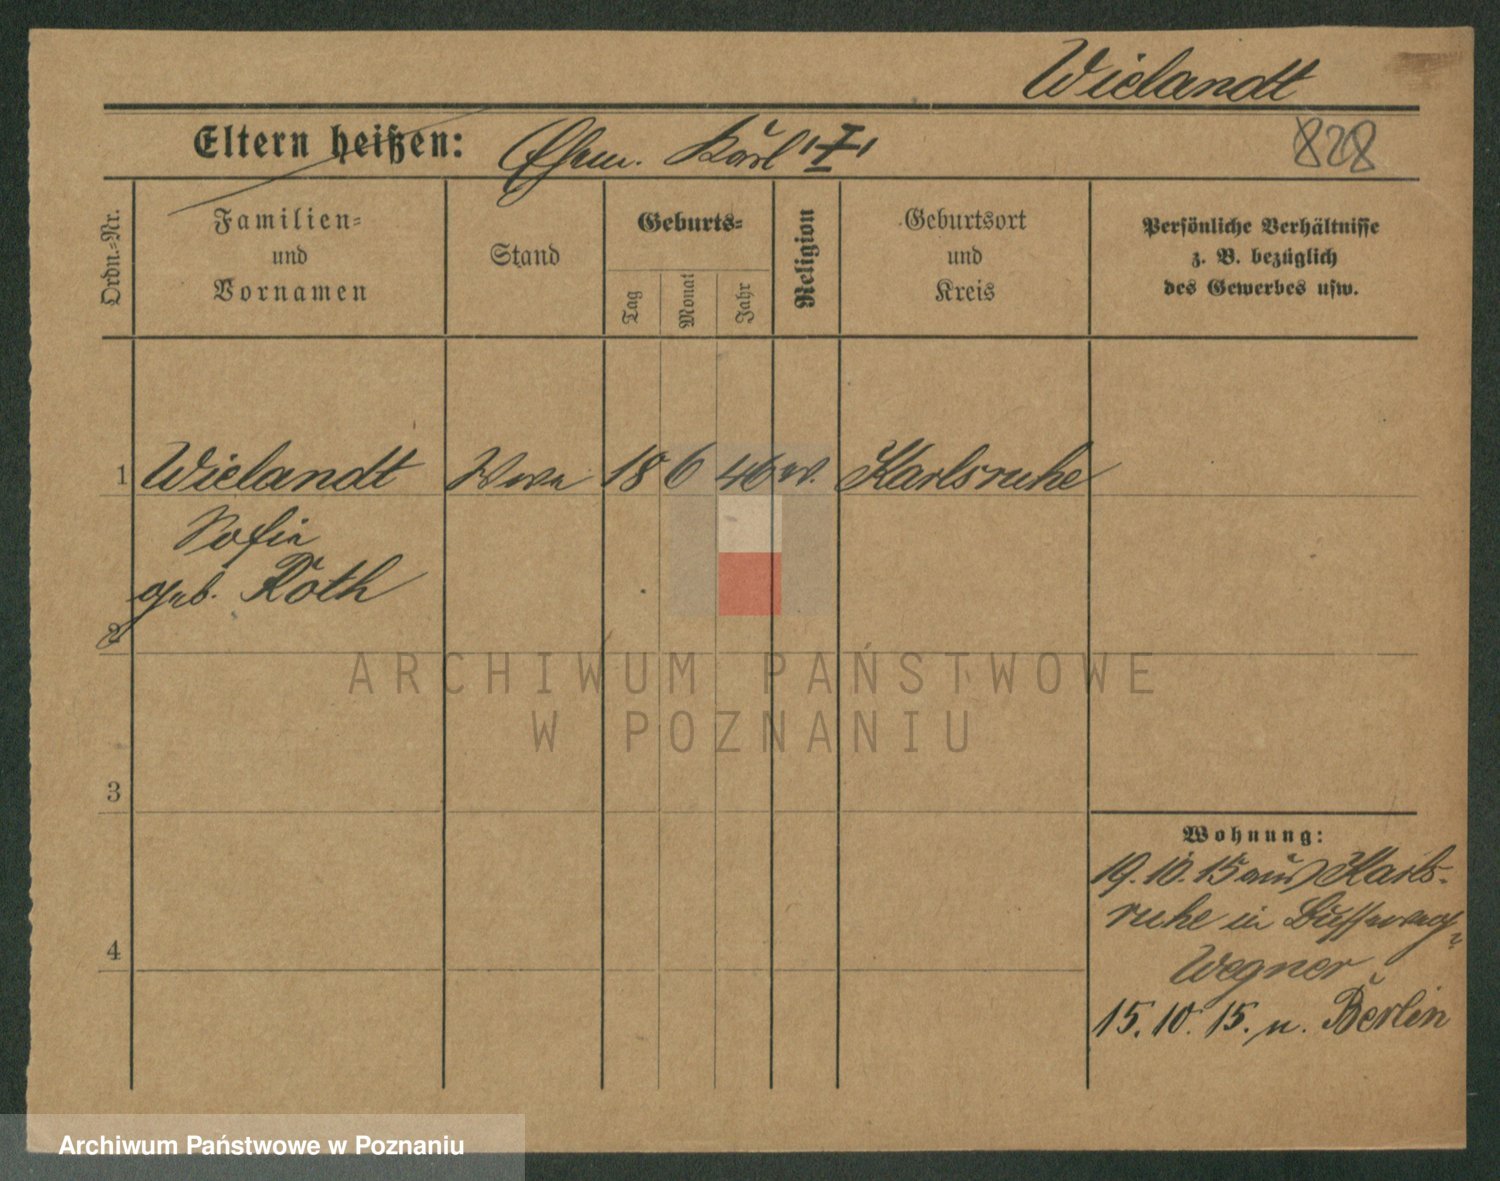 Wielandt
Eltern heißen: Ehem. Karl "I"
828
Ordn.=Nr.
Familien=
und
Vornamen
Stand
Geburts=
Tag
Monat
Jahr
Religion
Geburtsort
und
Kreis
Persönliche Verhältnisse
z. B. bezüglich
des Gewerbes usw.
1 Wielandt Wwe 18 6 46 ev. Karlsruhe
Sofie
geb. Roth
2
ARCHIWUM PAŃSTWOWE
W POZNANIU
3
Wohnung:
19.10.15 aus Karls-
ruhe in
4
Wegner
15.10.15. n. Berlin
Archiwum Państwowe w Poznaniu